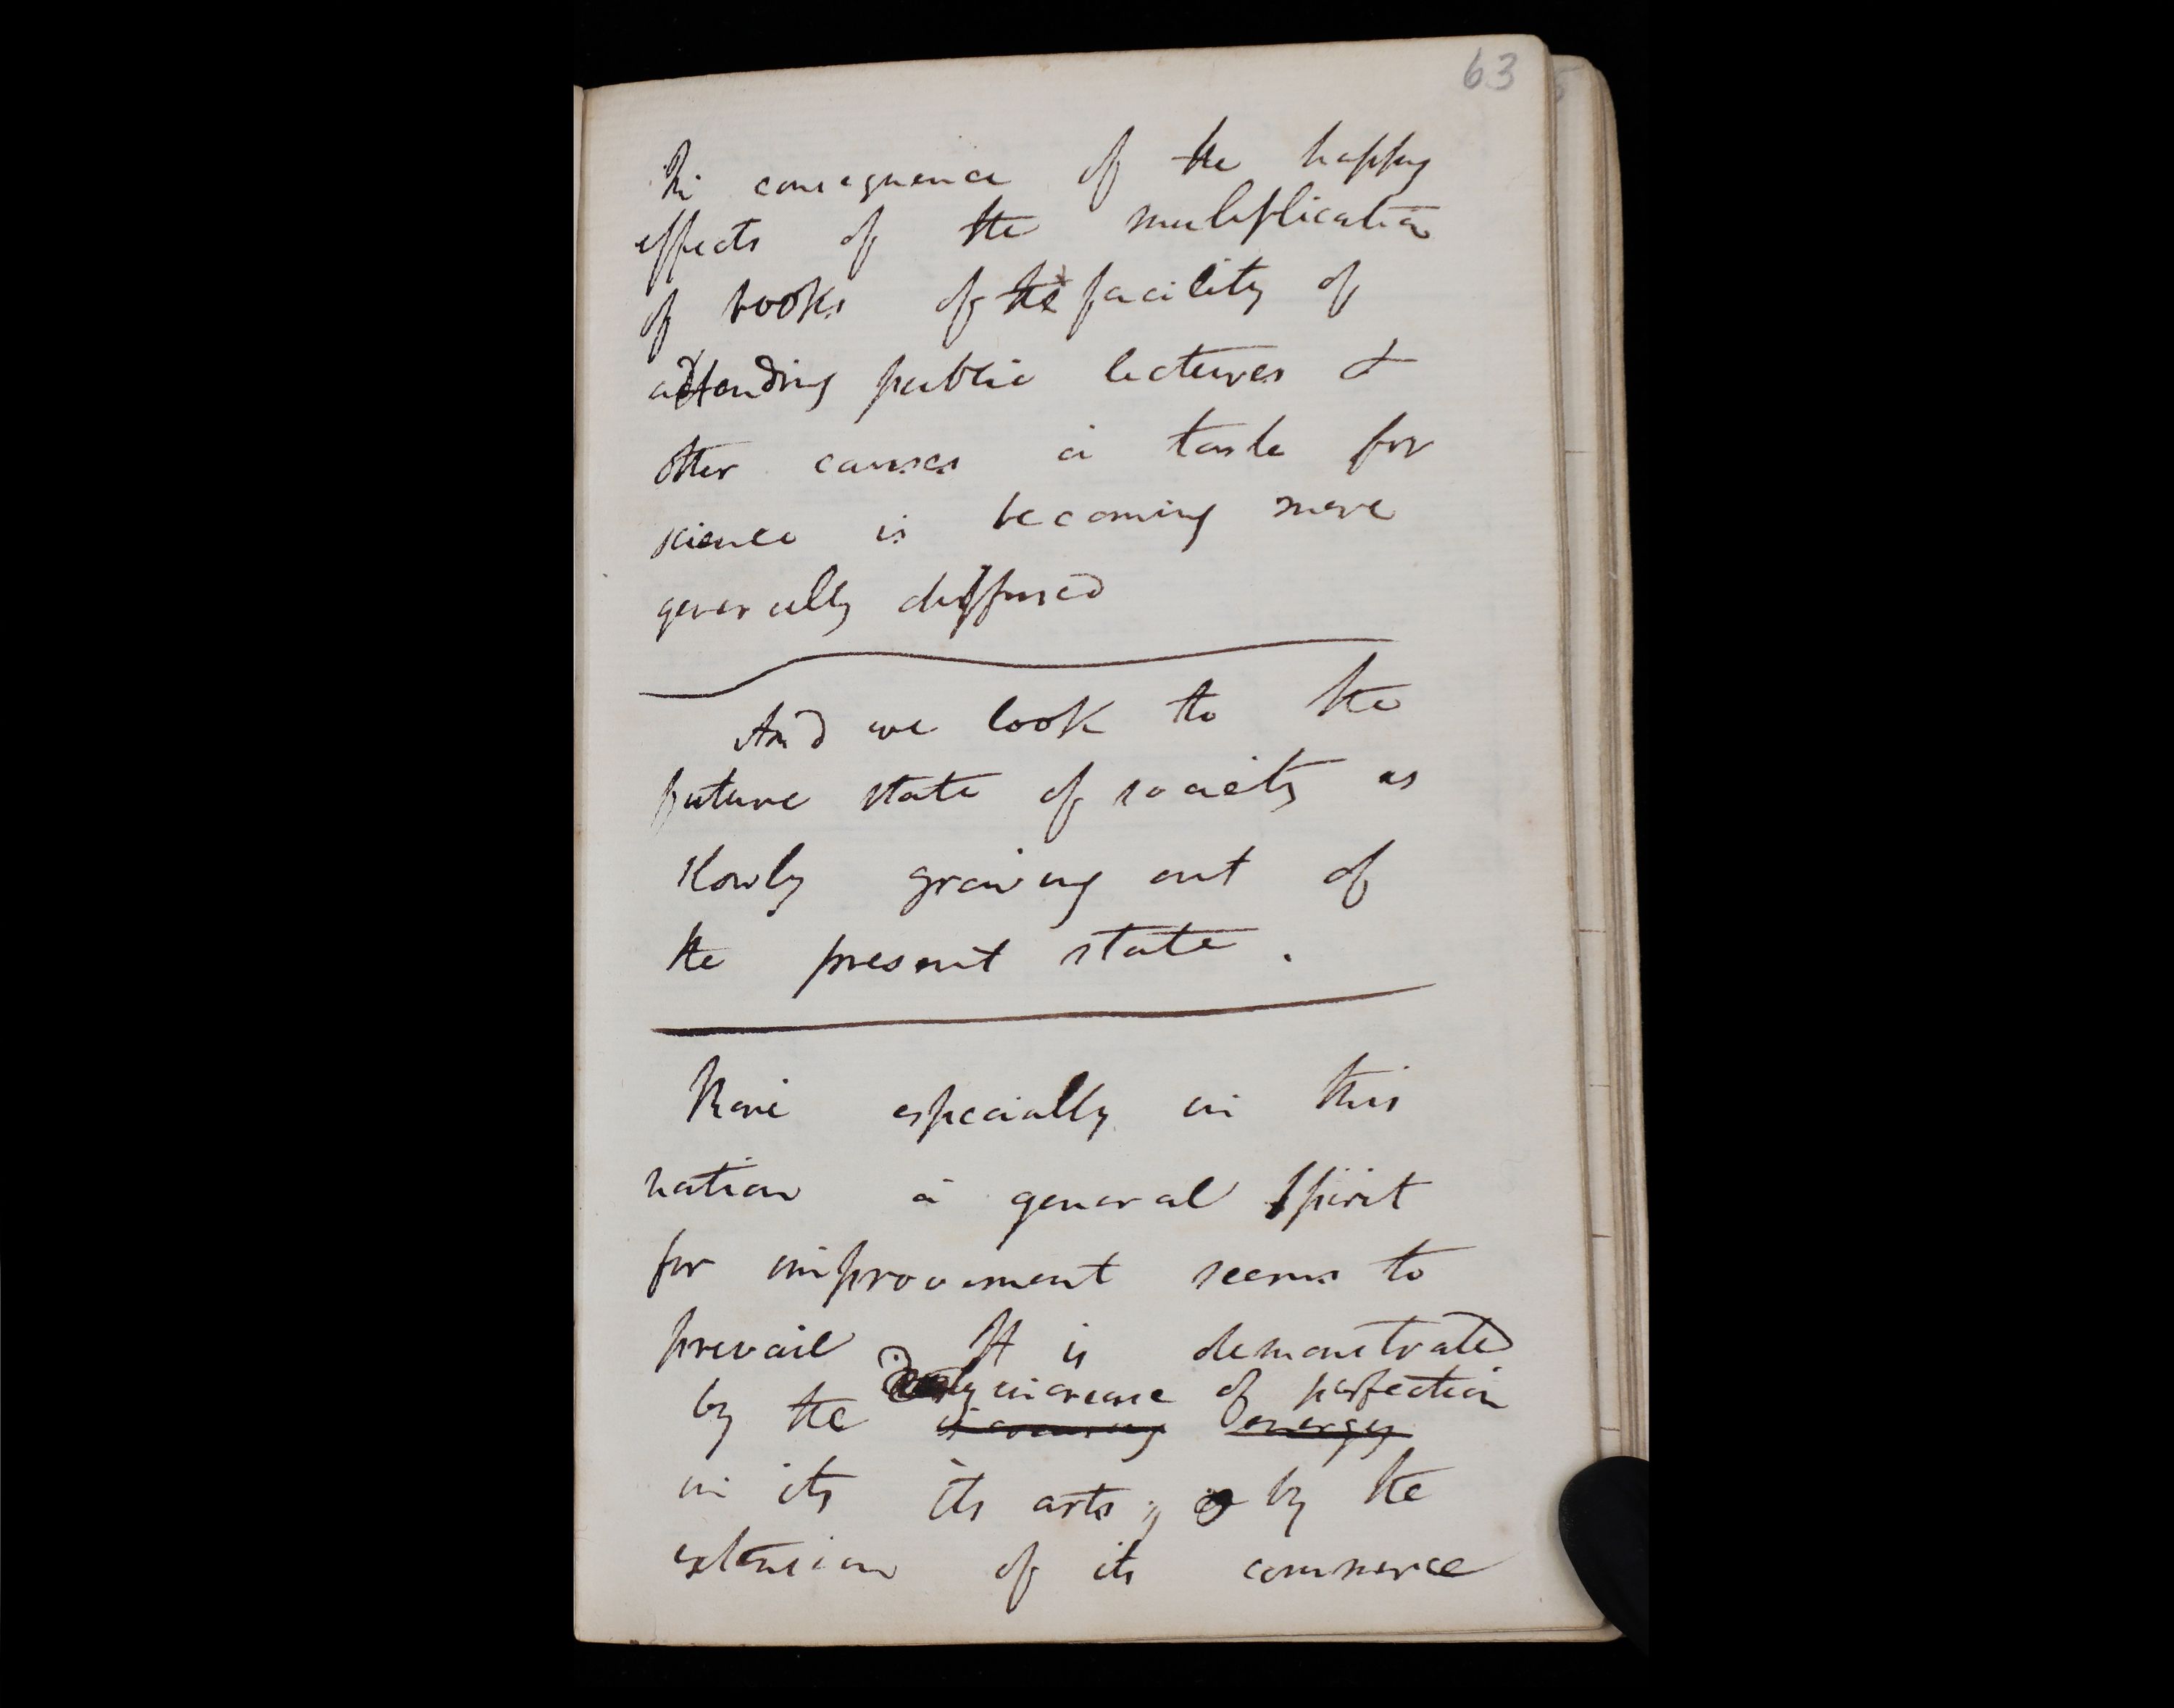 63
In consequence of the happy
effects of the multiplication
of books of the facility of
attending public lectures &
other causes a taste for
science is becoming more
generally diffused
And we look to the
future state of society as
slowly growing out of
the present state.
More especially in this
nation a general spirit
for improvement seems to
prevail It is demonstrated
increase of perfection
by the increasing energy
in its its arts, by the
extension of its commerce